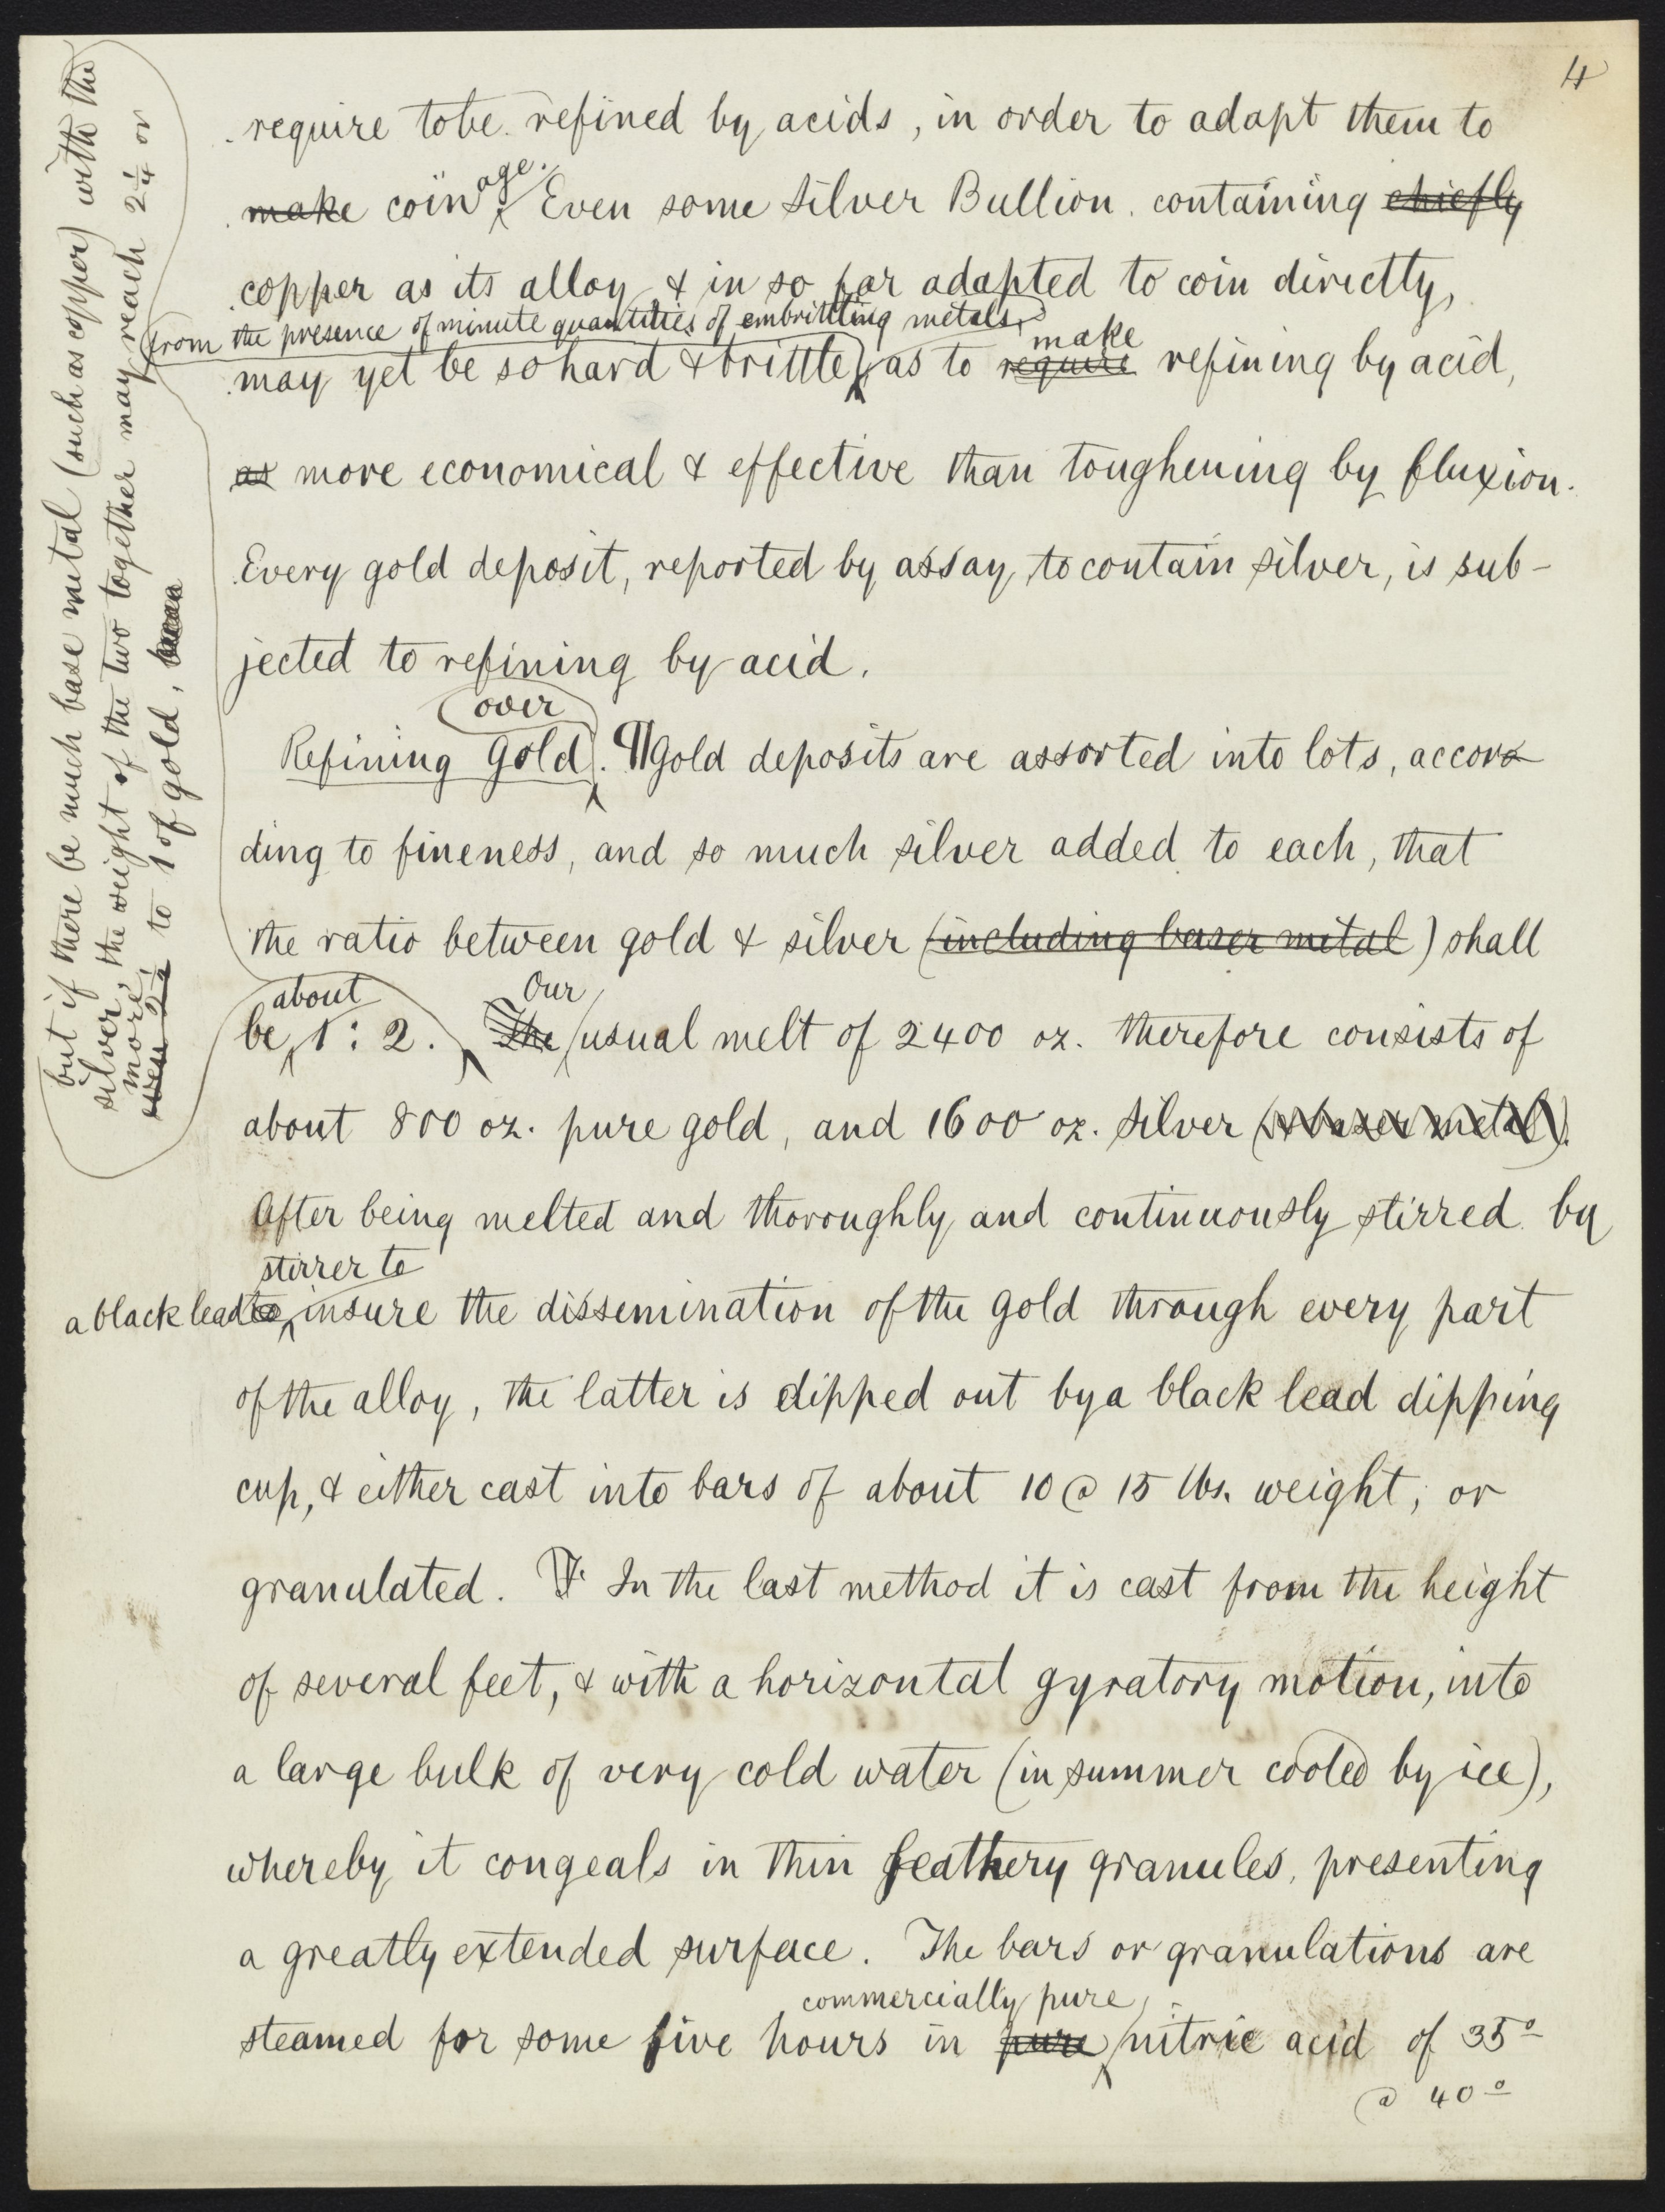 4
require to be refined by acids, in order to adapt them to
make coinage. Even some silver Bullion containing chiefly
copper as its alloy & in so far adapted to coin directly,
from the presence of minute quantities of embrittling metals,
make
may yet be so hard & brittle, as to require refining by acid,
as more economical & effective than toughening by fluxion.
Every gold deposit, reported by assay to contain silver, is sub-
jected to refining by acid.
over
Refining Gold. ¶Gold deposits are assorted into lots, accor-
ding to fineness, and so much silver added to each, that
the ratio between gold & silver (including baser metal) shall
about Our
be 1:2. The usual melt of 2400 oz. therefore consists of
about 800 oz. pure gold, and 1600 oz. silver (& baser metal).
After being melted and thoroughly and continuously stirred by
stirrer to
a black lead to insure the dissemination of the gold through every part
of the alloy, the latter is dipped out by a black lead dipping
cup, & either cast into bars of about 10 @ 15 lbs. weight, or
granulated. In the last method it is cast from the height
of several feet, & with a horizontal gyratory motion, into
a large bulk of very cold water (in summer cooled by ice),
whereby it congeals in thin feathery granules, presenting
a greatly extended surface. The bars or granulations are
commercially pure
steamed for some five hours in pure nitric acid of 35°
@ 40°
but if there be much base metal (such as copper) with the
silver, the weight of the two together may reach 2¼ or
more
even 2½ to 1 of gold,